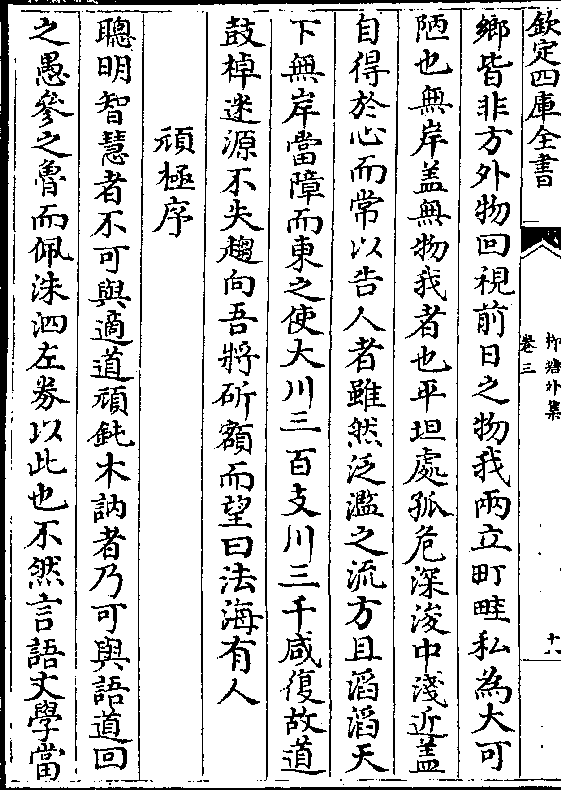 欽定四庫全書
柳塘外集
卷三
十八
鄉皆非方外物回視前日之物我兩立町畦私為大可
陋也無岸盖無物我者也平坦處孤危深浚中淺近盖
自得於心而常以告人者雖然泛濫之流方且滔滔天
下無岸當障而東之使大川三百支川三千咸復故道
鼓棹迷源不失趨向吾將斫額而望曰法海有人
頑極序
聰明智慧者不可與適道頑鈍木訥者乃可與語道回
之愚參之魯而佩洙泗左券以此也不然言語文學當